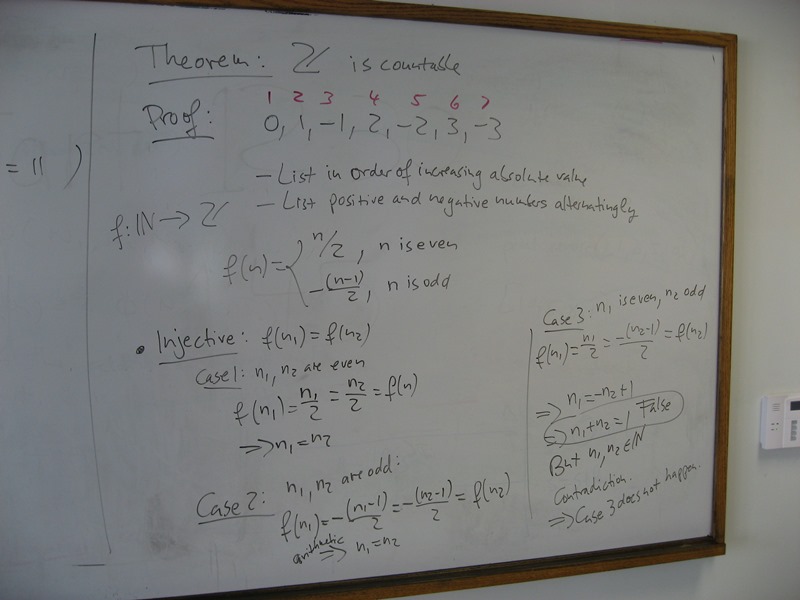 = 11 )
Theorem: ℤ is countable
1 2 3 4 5 6 7
Proof: 0, 1, -1, 2, -2, 3, -3
- List in order of increasing absolute value
- List positive and negative numbers alternatingly
f: ℕ → ℤ
f(n) = { n/2, n is even
-(n-1)/2, n is odd
• Injective: f(n₁) = f(n₂)
Case 1: n₁, n₂ are even
f(n₁) = n₁/2 = n₂/2 = f(n)
⇒ n₁ = n₂
Case 2: n₁, n₂ are odd:
f(n₁) = -(n₁-1)/2 = -(n₂-1)/2 = f(n₂)
arithmetic ⇒ n₁ = n₂
Case 3: n₁ is even, n₂ odd
f(n₁) = n₁/2 = -(n₂-1)/2 = f(n₂)
⇒ n₁ = -n₂+1
⇒ n₁+n₂ = 1 False
But n₁, n₂ ∈ ℕ
Contradiction.
⇒ Case 3 does not happen.